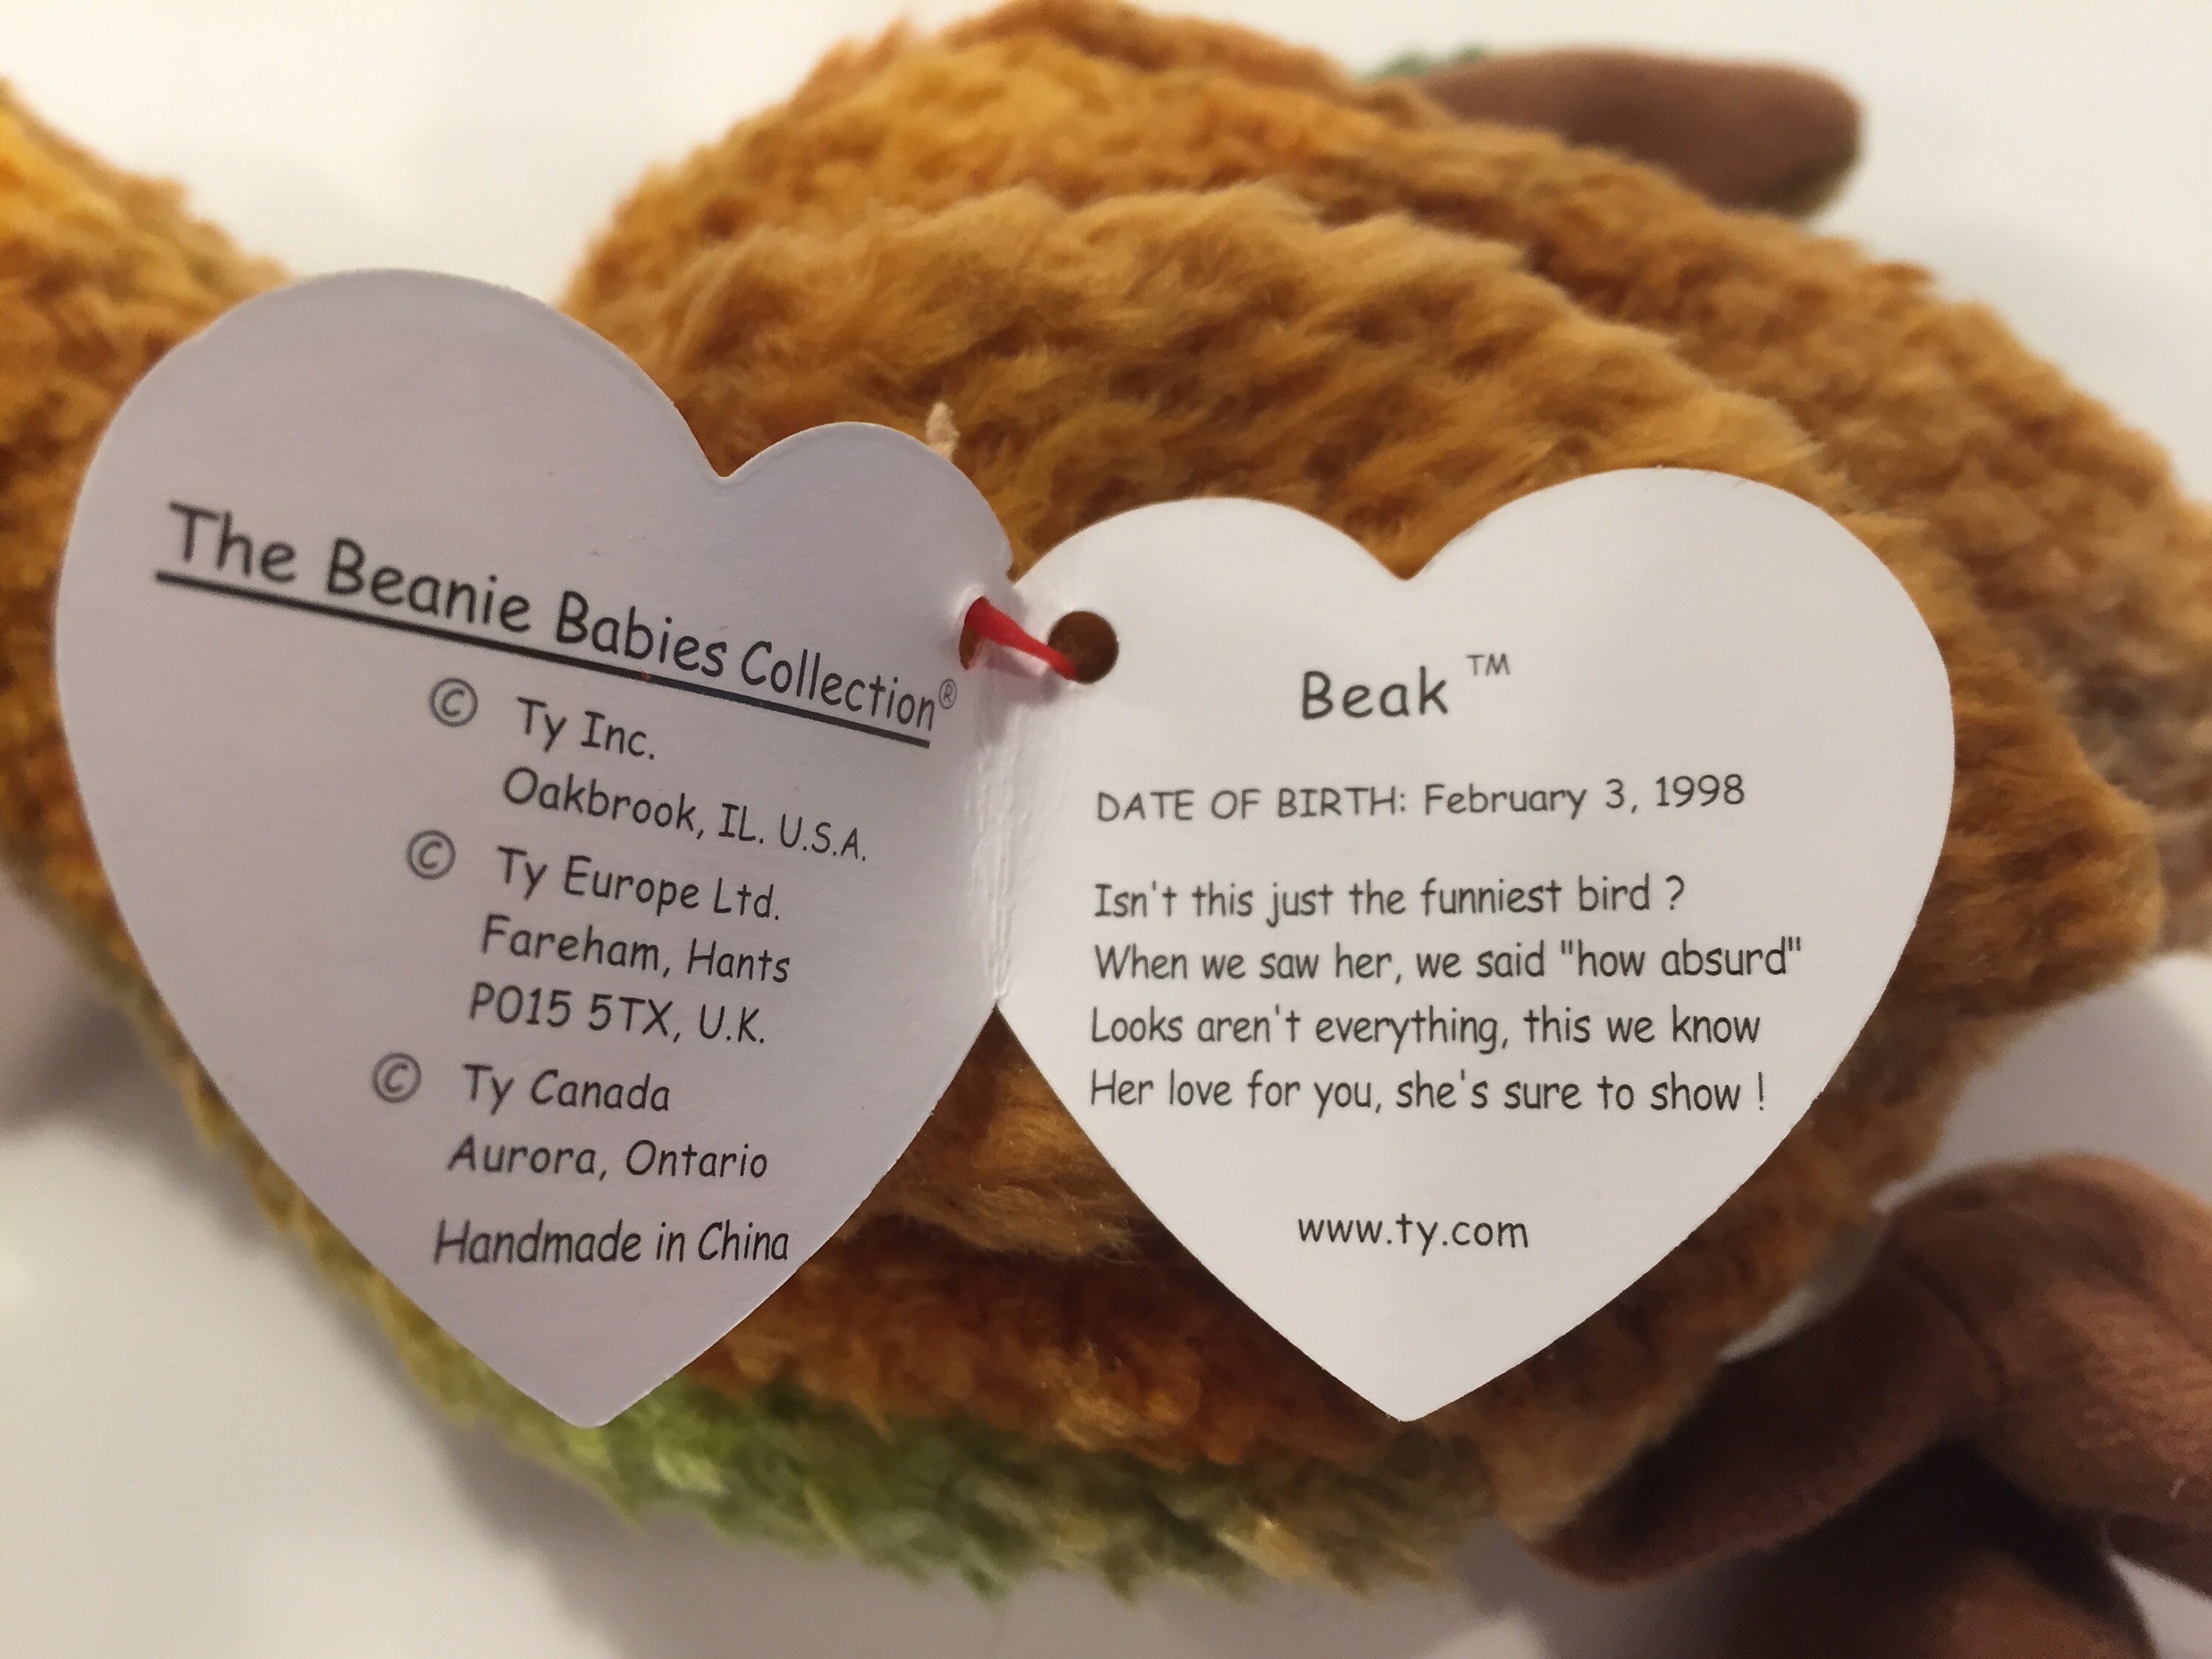 The Beanie Babies Collection®
© Ty Inc.
Oakbrook, IL. U.S.A.
© Ty Europe Ltd.
Fareham, Hants
PO15 5TX, U.K.
© Ty Canada
Aurora, Ontario
Handmade in China
Beak ™
DATE OF BIRTH: February 3, 1998
Isn't this just the funniest bird ?
When we saw her, we said "how absurd"
Looks aren't everything, this we know
Her love for you, she's sure to show !
www.ty.com